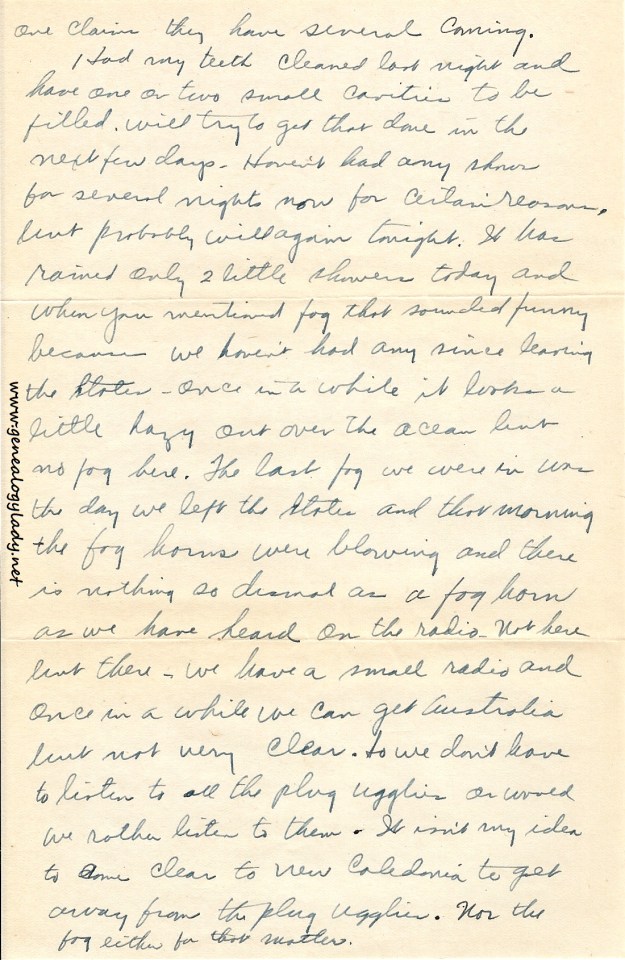 one claims they have several coming.
Had my teeth cleaned last night and
have one or two small cavities to be
filled. Will try to get that done in the
next few days. Haven't had any shows
for several nights now for certain reasons,
but probably will again tonight. It has
rained only 2 little showers today and
when you mentioned fog that sounded funny
because we haven't had any since leaving
the States - once in a while it looks a
little hazy out over the ocean but
no fog here. The last fog we were in was
the day we left the States and that morning
the fog horns were blowing and there
is nothing so dismal as a fog horn
as we have heard on the radio. Not here
but there - we have a small radio and
once in a while we can get Australia
but not very clear. So we don't have
to listen to all the plug ugglies or would
we rather listen to them. It isn't my idea
to come clear to New Caledonia to get
away from the plug ugglies. Nor the
fog either for that matter.
www.genealogylady.net